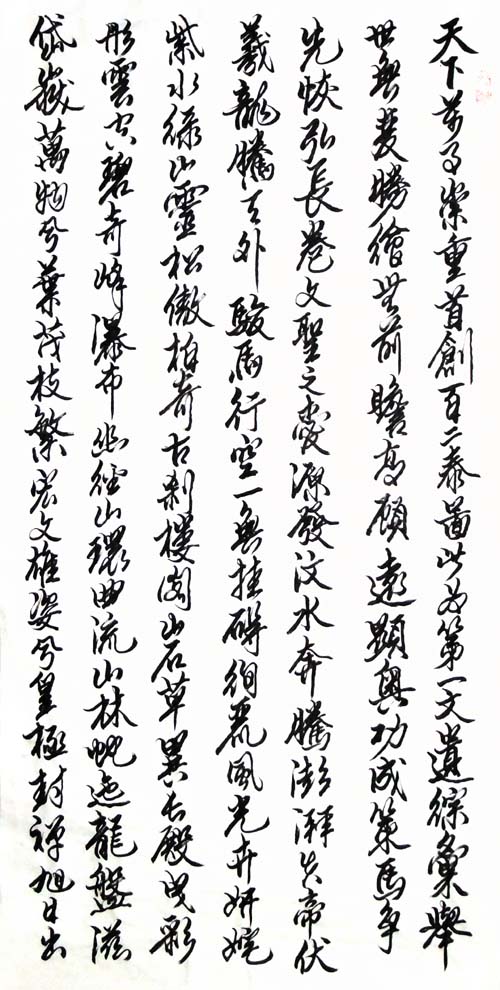 天下万事崇重首創百二泰圖此为第一文遺綜彙舉
世無雙勝繪世前瞻高顧遠顯奥功成策馬争
先恢弘長卷文聖之愛源發汶水奔騰澎湃炎帝伏
羲龍騰天外駿馬行空一無挂碍絢麗風光卉妍嬈
紫水緑山靈松傲柏奇古刹樓閣山石草異古殿曳彩
彤雲空碧奇峰瀑布幽徑山環曲流山林蛇迤龍盤滋
岱嶽萬物兮葉茂枝繁宏文雄姿兮皇極封禪旭日出